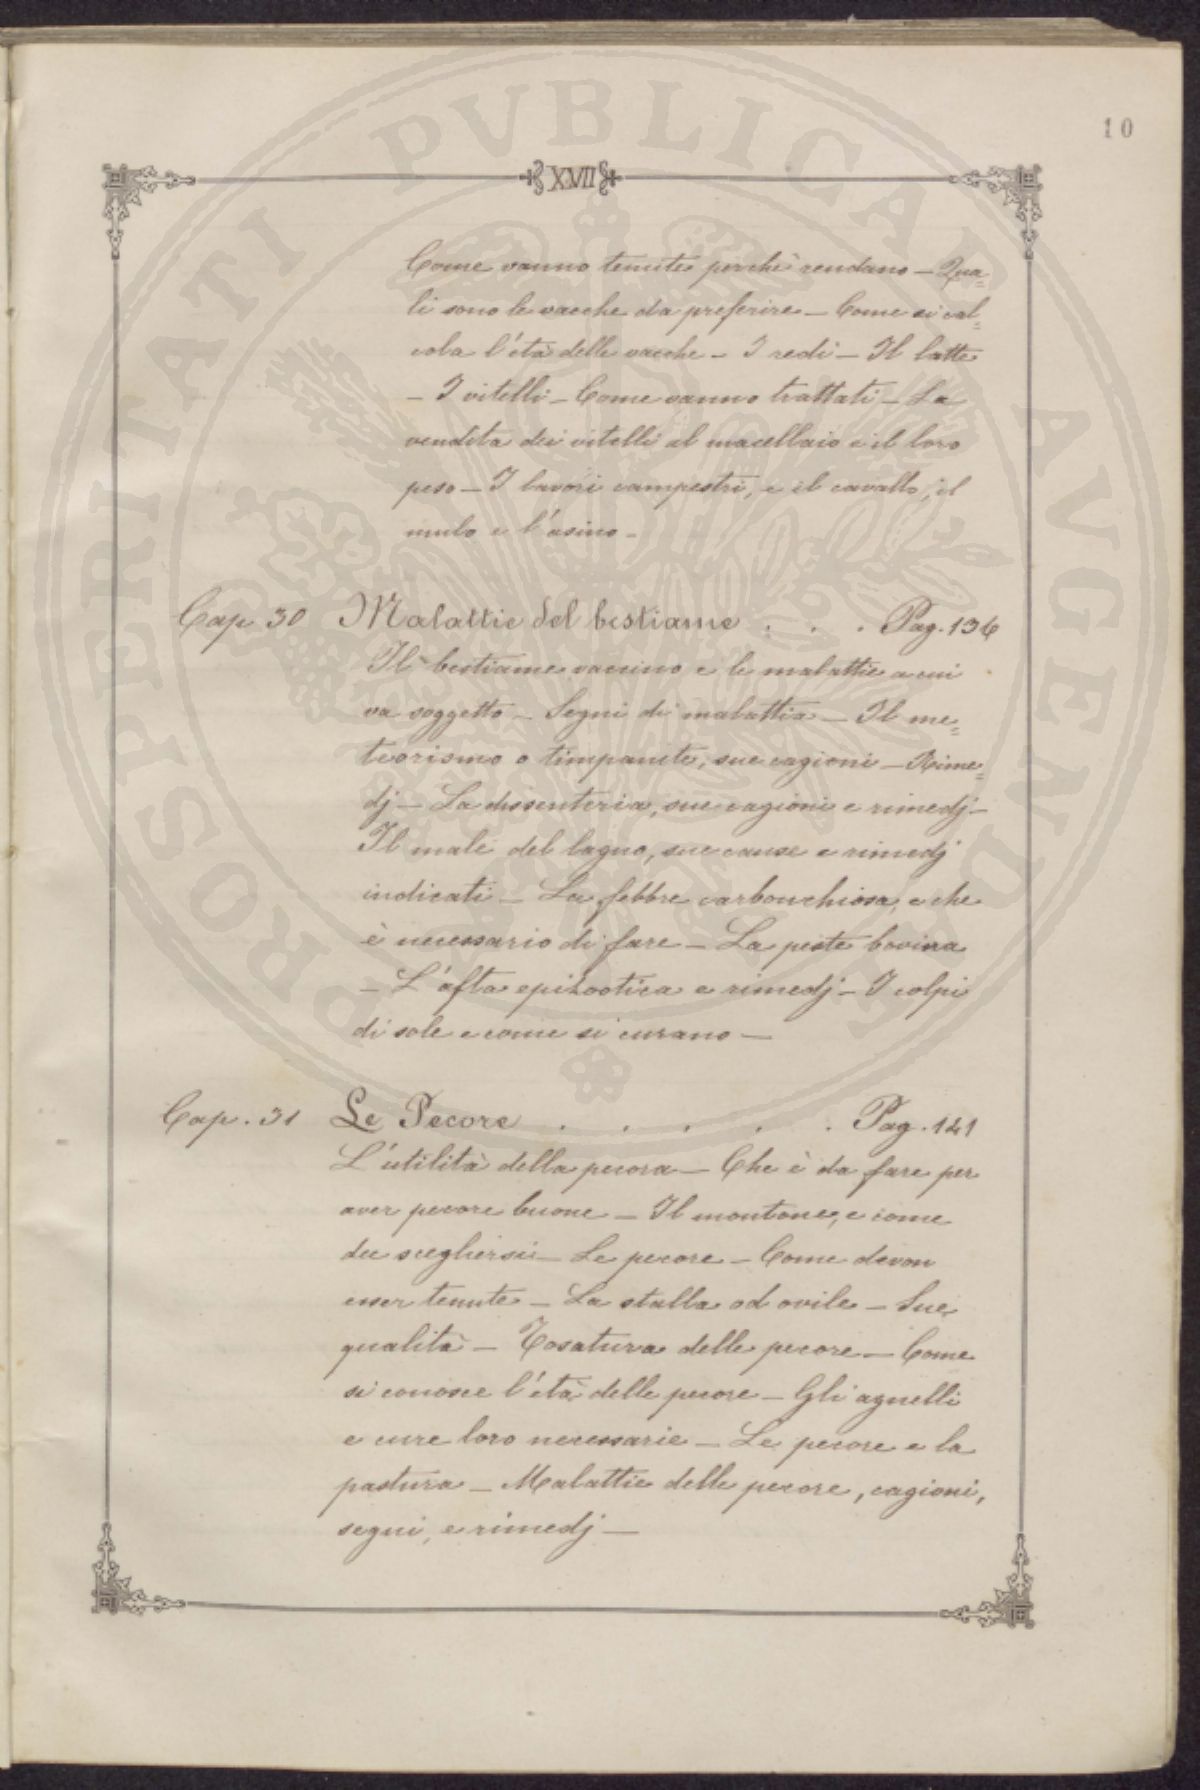 10
XVII
Come vanno tenute perchè rendano — Qua=
li sono le vacche da preferire — Come si cal=
cola l'età delle vacche — I redi — Il latte
— I vitelli — Come vanno trattati — La
vendita dei vitelli al macellaio e il loro
peso — I lavori campestri, e il cavallo, il
mulo e l'asino —
Cap. 30 Malattie del bestiame . . . Pag. 136
Il bestiame vaccino e le malattie a cui
va soggetto — Segni di malattia — Il me=
teorismo o timpanite, sue cagioni — Rime=
dj — La dissenteria, sue cagioni e rimedj —
Il male del lagno, sue cause e rimedj
indicati — La febbre carbonchiosa, e che
è necessario di fare — La peste bovina
— L'afta epizootica e rimedj — I colpi
di sole e come si curano —
Cap. 31 Le Pecore . . . . . Pag. 141
L'utilità della pecora — Che è da fare per
aver pecore buone — Il montone, e come
dee scegliersi — Le pecore — Come devon
esser tenute — La stalla od ovile — Sue
qualità — Tosatura delle pecore — Come
si conosce l'età delle pecore — Gli agnelli
e cure loro necessarie — Le pecore e la
pastura — Malattie delle pecore, cagioni,
segni, e rimedj —
PROSPERITATI PVBLICAE AVGENDAE